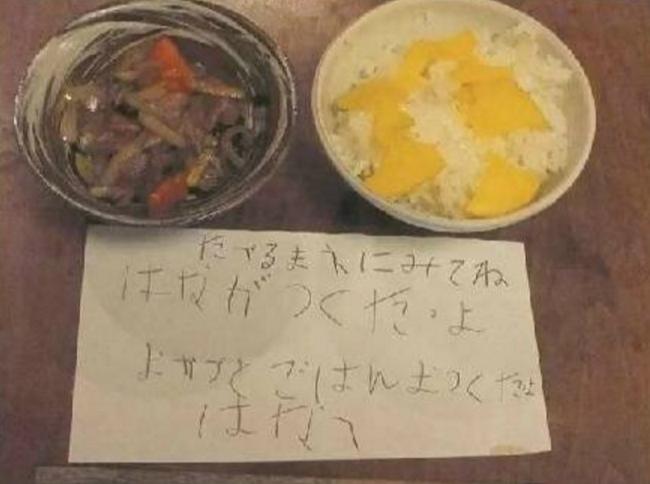 たべるまえにみてね
はながつくたよ
おかずとごはんおつくたよ
はなへ